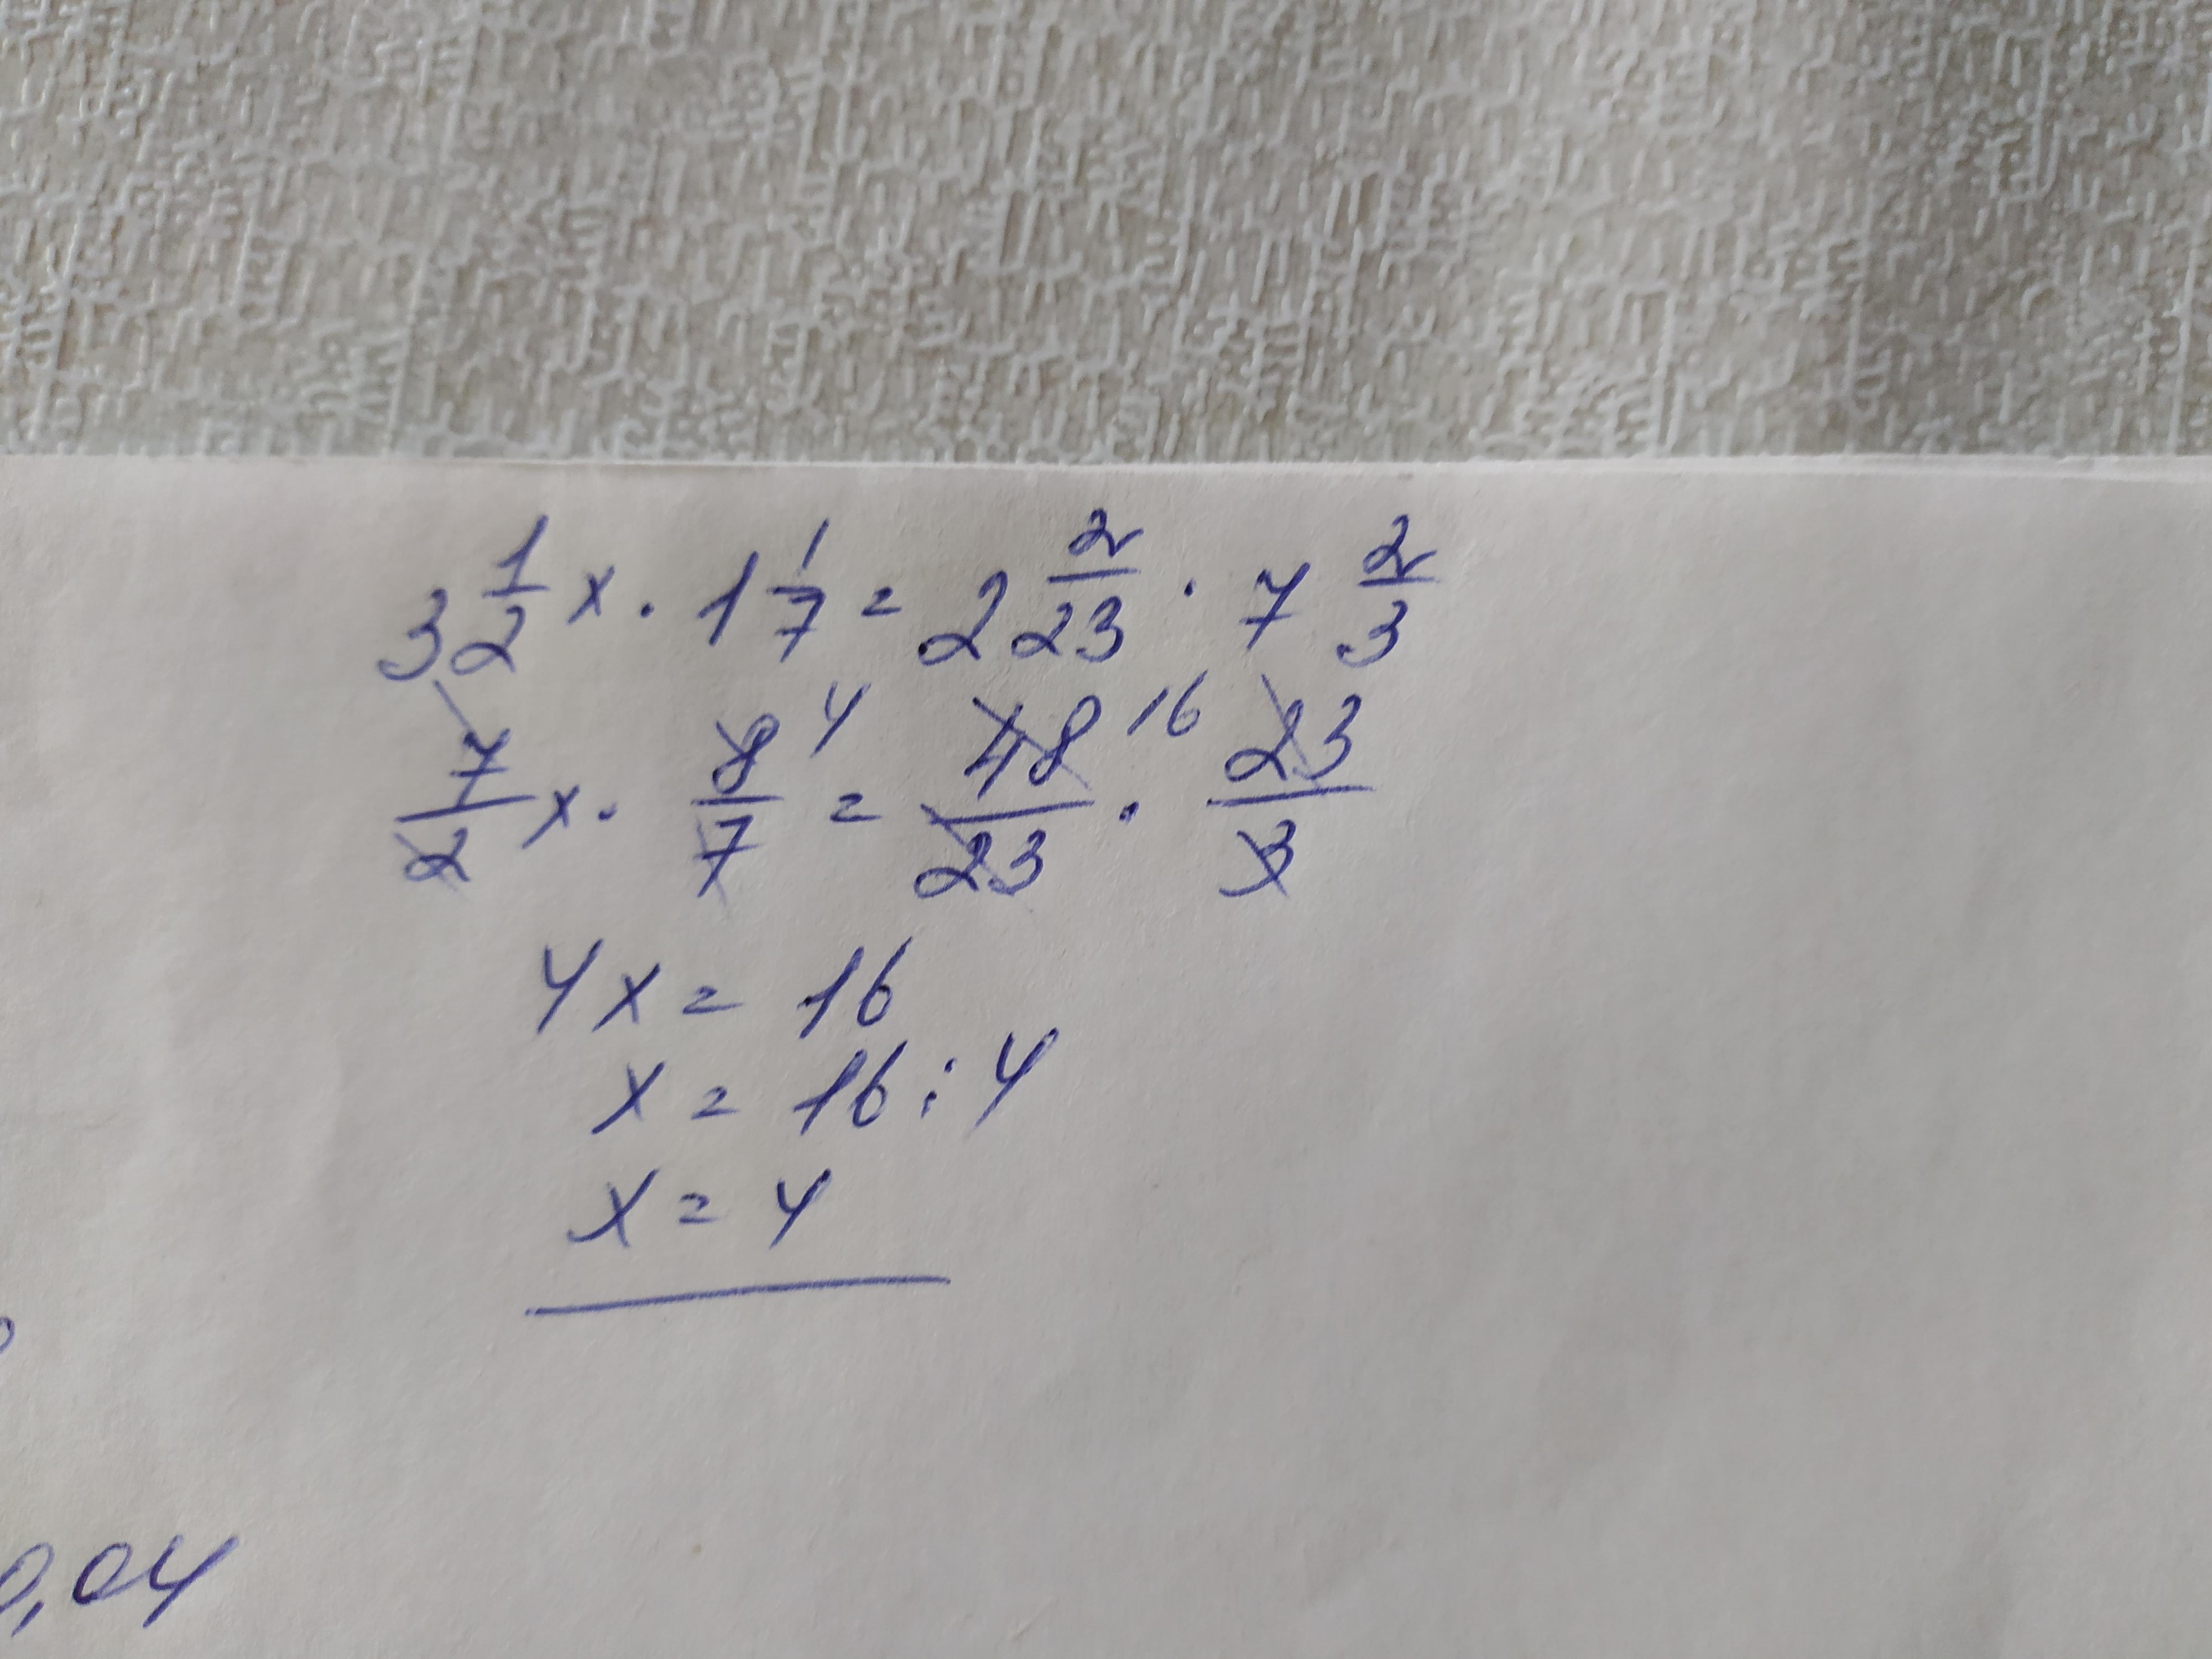 3 1/2 x · 1 1/7 = 2 2/23 · 7 2/3
7/2 x · 8/7 4 = 48/23 16 · 23/3
4x = 16
x = 16 : 4
x = 4
0,04